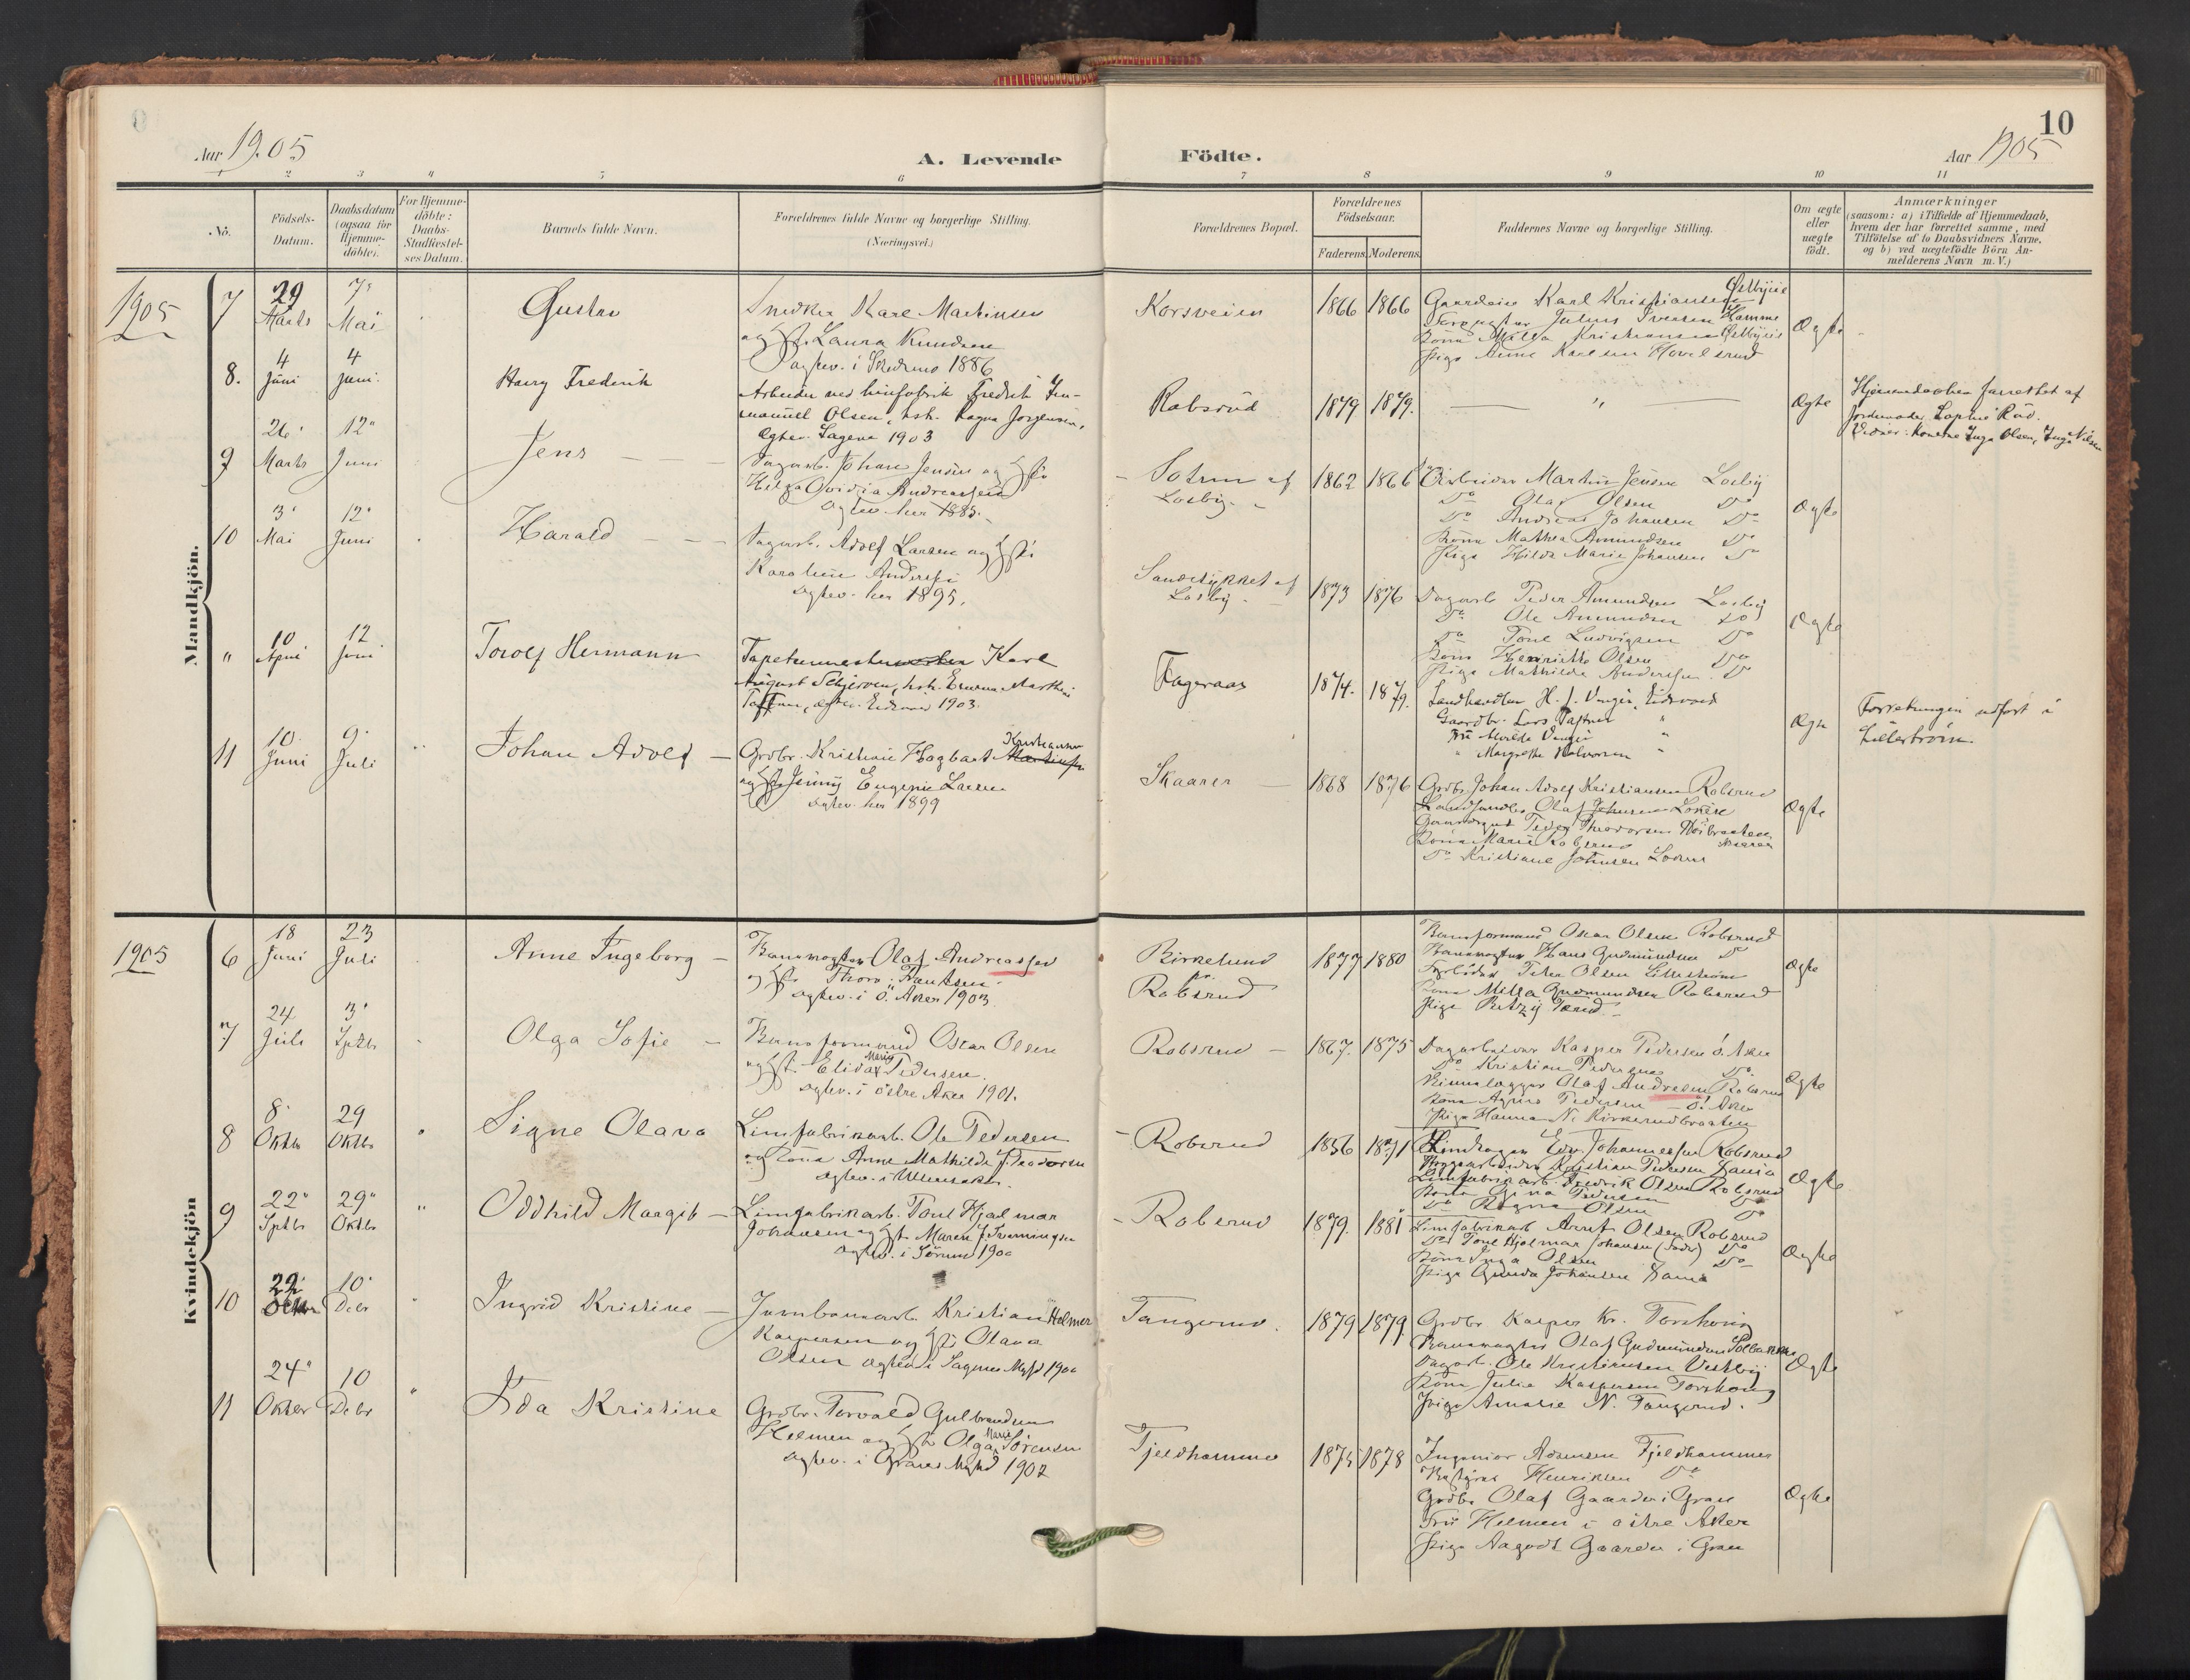 10
Aar 1905
A. Levende Födte.
Aar 1905
1 2 3 4 5 6 7 8 9 10 11
No.
Födsels-Datum.
Daabsdatum (ogsaa for Hjemme-döbte).
For Hjemme-döbte: Daabs-Stadfæstel-ses Datum.
Barnets fulde Navn.
Forældrenes fulde Navne og borgerlige Stilling. (Næringsvei.)
Forældrenes Bopæl.
Forældrenes Födselsaar.
Faderens. Moderens.
Faddernes Navne og borgerlige Stilling.
Om ægte eller uægte födt.
Anmærkninger
(saasom: a) i Tilfælde af Hjemmedaab,
hvem der har forrettet samme, med
Tilföielse af to Daabsvidners Navne,
og b) ved uægtefödte Börn An-
melderens Navn m. V.)
Mandkjön.
1905
7 29 Marts 7 Mai Gustav
Snedker Karl Martinsen
og Laura Knudsen
1886
Korsveien 1866 1866
Gaardeier Karl Kristiansen Østbyeie
Julius Iversen Hammer
Kona Milda Kristiansen Østbyeie
Pige Anne Karlsen
Ægte
8. 4 Juni 4 Juni Harry Frederik
Arbeider ved limfabrik Fredrik Im-
manuel Olsen, hst. Ragna Jørgensen,
Ægtev. Sagene 1903
Robsrud 1879 1879. Ægte
Hjemmedaaben forrettet af
Jordemoder Sophie Rud.
Vidner: Konerne Inga Olsen, Inga Nilsen
9 26 Marts 12 Juni Jens
Dagarb. Johan Jensen og
Helga Ovidia Andreassen
Ægtev. her 1885.
Losby 1862 1866
Arbeider Martin Jensen Losby
Do Olaf Olsen Do
Do Andreas Johansen Do
Kona Mathea Amundsen Do
Pige Hilda Marie Johansen Do
Ægte
10 3 Mai 12 Juni Harald
Dagarb. Adolf Larsen og
Karoline
Ægtev. her 1895.
Sandstykket af
Losby 1873 1876
Dagarb Peder Amundsen Losby
Do Ole Amundsen Do
Do Tone Ludvigsen Do
Kona Henriette Olsen Do
Pige Mathilde Andersen Do
Ægte
" 10 April 12 Juni Torolf Hermann
Karl
August, hst.
Ægtev. Eidsvold 1903.
Fageraas 1874. 1879.
Landhandler H. J. Eidsvold
Gaardbr. Lars
Frk Hulda
Margrethe Halvorsen
Forretningen udført i
Lilleström
11 10 Juni 9 Juli Johan Adolf
Grdbr. Kristian Hagbart Kristiansen
og Jenny Eugenie Larsen
Ægtev. her 1899
Skaarer 1868 1876
Grdbr Johan Adolf Kristiansen Robsrud
Landhandler Olaf Johnsen
Peder Theodorsen
Kona Marie Robsrud
Do Kristiane Johnsen
Ægte
Kvindekjön
1905
6 18 Juni 23 Juli Anne Ingeborg
Banevogter Olaf Andreassen
og Thora Frantsen
Ægtev. i Ö. Aker 1903
Birkelund
pr.
Robsrud 1877 1880
Baneformand Oskar Olsen Robsrud
Banevogter Hans Gudmundsen Do
Peter Olsen Lilleström
Kona Milla Gudmundsen Robsrud
Pige Betzy
Ægte
7 24 Juli 3 Septbr Olga Sofie
Baneformand Oscar Olsen
og Elida Marie Pedersen
Ægtev. i östre Aker 1901.
Robsrud 1867. 1875
Dagarbeider Kasper Pedersen Ö. Aker
Do Kristian Pedersen Do
Olaf Andresen Robsrud
Kona Agnes Pedersen Ö. Aker
Pige Hanna N. Kirkerudbraaten
Ægte
8 8 Oktbr 29 Oktbr Signe Olava
Limfabrikarb. Ole Pedersen
og Kona Anne Mathilde
Ægtev. i Ullensaker.
Robsrud 1856 1871
Edv. Johannessen Robsrud
Kristian Pedersen Dania
Limfabrikarb. Fredrik Olsen Robsrud
Kona Gina Pedersen Do
Do Ragna Olsen Do
Ægte
9 22 Septbr 29 Oktbr Oddhild Maagit
Limfabrikarb. Tone Hjalmar
Johansen og Maren J. Svenningsen
Ægtev. i Sörum 1900
Robsrud 1879. 1881
Limfabrikarb Arnt Olsen Robsrud
Do Tone Hjalmar Johansen (Fader) Do
Kona Inga Olsen Do
Pige Gunda Johansen Dania
Ægte
10 22 Oktbr 10 Debr Ingrid Kristine
Jernbanearb. Kristian Helmer
Kaspersen og Olava
Olsen Ægtev. i Sagenes Mghd 1900
Tangerud. 1879 1879
Grdbr. Kasper Kr. Torshoug
Banevogter Olaf Gudmundsen Solbakken
Dagarb. Ole Kristensen Vestby
Kona Julie Kaspersen Torshoug
Pige Amalie N. Tangerud.
Ægte
11 24 Oktbr 10 Debr Ida Kristine
Grdbr. Torvald Gulbrandsen
Helmen og Olga Marie Sörensen
Ægtev. i 1902
Fjeldhammer 1875 1878
Ingeniör Adamsen Fjeldhammer
Henriksen Do
Grdbr Olaf Gaarder i Gran
Fru Helmen i östre Aker
Pige Aagodt Gaarder i Gran
Ægte